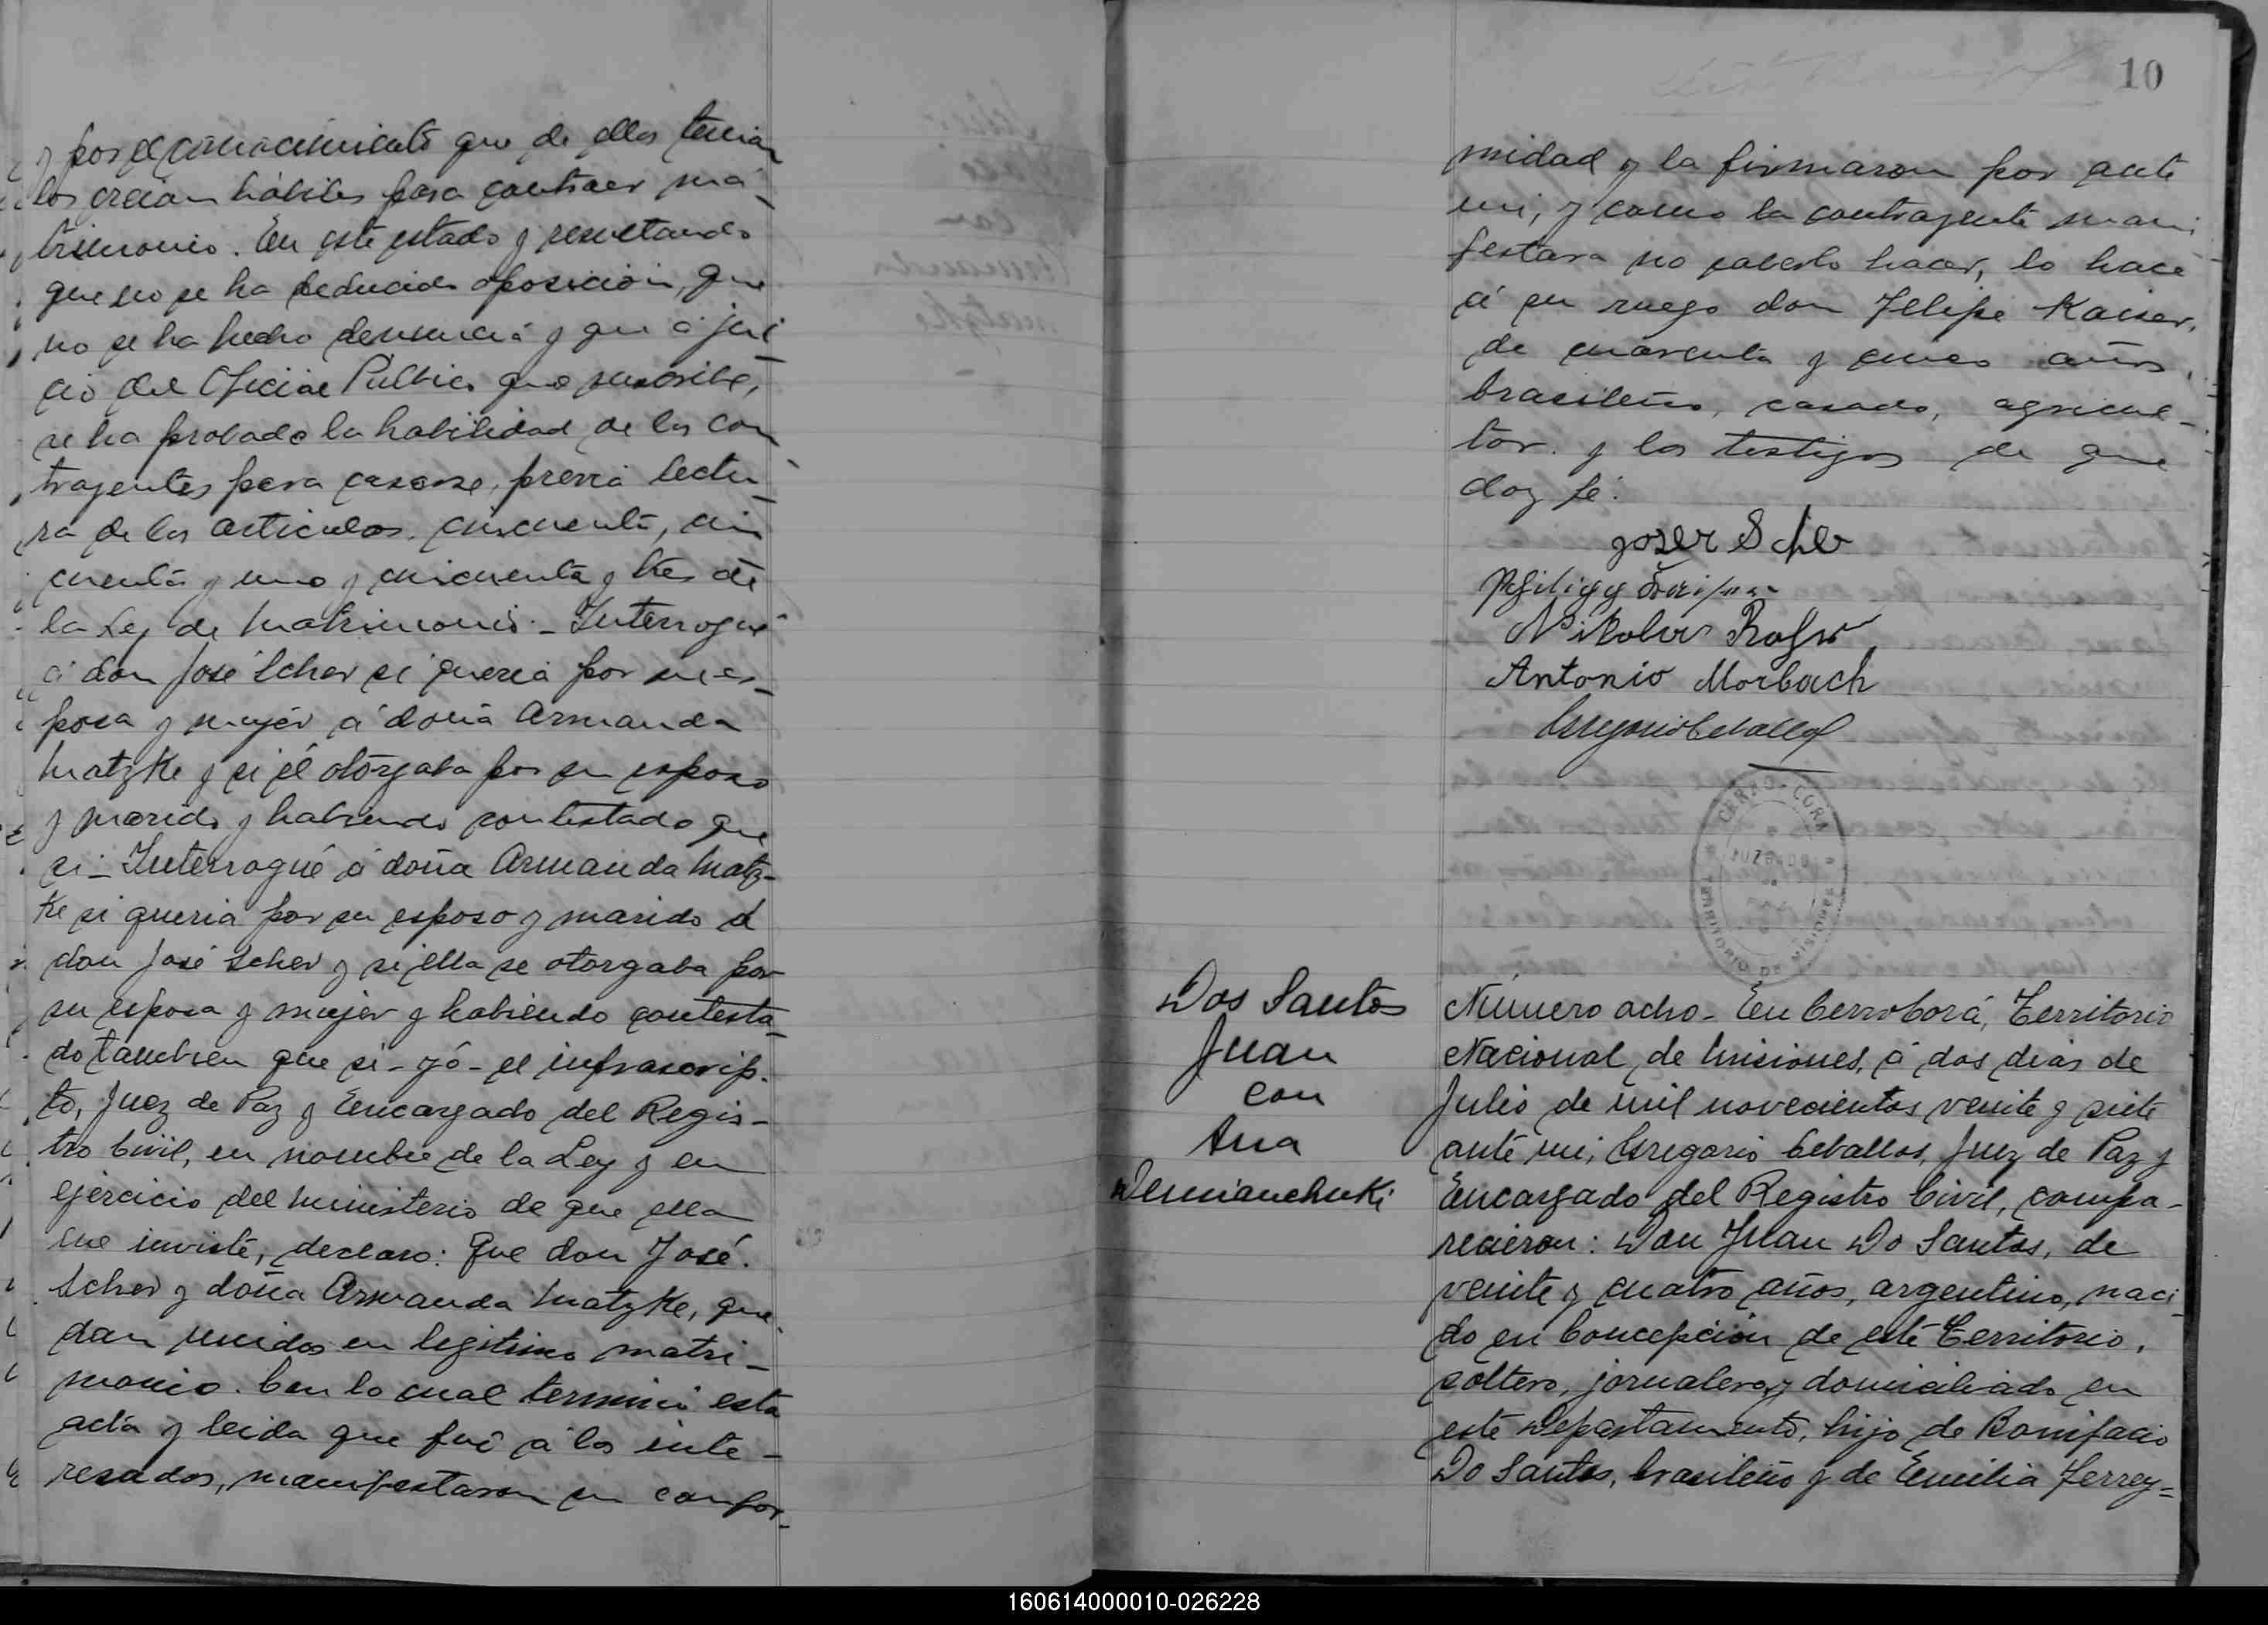 y por el conocimiento que de ellos tenian
los creian hábiles para contraer ma-
trimonio. En este estado y resultando
que no se ha deducido oposición, que
no se ha hecho denuncia y que á jui-
cio del Oficial Publico que suscribe,
se ha probado la habilidad de los con-
trayentes para casarse, previa lectu-
ra de los articulos, cincuenta, cin
cuenta y uno y cincuenta y tres de
la Ley de Matrimonio - Interrogué
á don José Scher si queria por su es-
posa y mujer á doña Armanda
Matzke y si él otorgaba por su esposo
y marido y habiendo contestado que
si - Interrogué á doña Armanda Matz-
ke si queria por su esposo y marido á
don José Scher y si ella se otorgaba por
su esposa y mujer y habiendo contesta-
do tambien que si - yó - el infrascrip-
to, Juez de Paz y Encargado del Regis-
tro Civil, en nombre de la Ley y en
ejercicio del ministerio de que ella
me inviste, declaro: Que don José
Scher y doña Armanda Matzke, que-
dan unidos en legitimo matri-
monio. Con lo cual terminó esta
acta y leida que fué á los inte-
resados, manifestaron su confor-
10
midad y la firmaron por ante
mi, y como la contrayente mani
festara no saberlo hacer, lo hace
á su ruego don Felipe Kaiser,
de cuarenta y cinco años,
brasileño, casado, agricul-
tor. y los testigos de que
doy fé.
Antonio Morbach
Gregorio Ceballos
CERRO-CORÁ
JUZGADO
DE
PAZ
TERRITORIO DE MISIONES
Dos Santos
Juan
con
Ana
Demianchuki
Número ocho - En Cerro Corá, Territorio
Nacional de Misiones, á dos dias de
Julio de mil novecientos veinte y siete
ante mi, Gregorio Ceballos, Juez de Paz y
Encargado del Registro Civil, compa-
recieron: Don Juan Do Santos, de
veinte y cuatro años, argentino, naci-
do en Concepción de este Territorio,
soltero, jornalero y domiciliado en
este Departamento, hijo de Bonifacio
Do Santos, brasileño y de Emilia Ferrey=
160614000010-026228